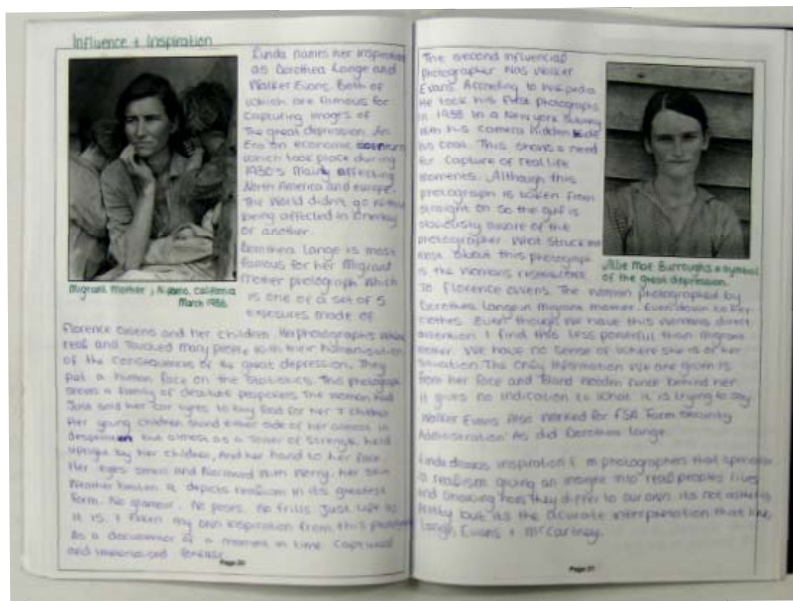 Influence + Inspiration
Linda names her inspiration
as Dorothea Lange and
Walker Evans. Both of
which are famous for
Capturing images of
The great depression. An
Era on economic
which took place during
1930's Mainly affecting
North America and europe.
The World didn't go without
being affected in one way
or another.
Dorothea Lange is most
famous for her Migrant
Mother photograph which
is one of a set of 5
exposures made of
Migrant Mother, Nipomo, California
March 1936.
Florence Owens and her children. Her photographs where
real and touched many people with their humanisation
of the Consequences of the great depression. They
put a human face on the Statistics. This photograph
shows a family of desolate The woman had
Just sold her car tyres to buy food for her 7 children
Her young children stand either side of her almost in
but almost as a tower of strength, held
upright by her children, And her hand to her face.
Her eyes small and Narrowed with worry, her skin
Weather beaten. It depicts realism in its greatest
form. No glamour. No poses. No frills Just Life as
it is. I taken my own inspiration from this
As a of a moment in time. Captured
and immortalised forever.
Page 30
The second influencial
photographer Was Walker
Evans. According to Wikipedia
He took his first photographs
in 1938 In a New york Subway
with his camera hidden
his coat. This shows a need
for capture of real life
moments. Although this
photograph is taken from
straight on so the girl is
obviously aware of the
photographer. What struck me
most about this photograph
is the Womans resemblance
Allie Mae Burroughs a symbol
of the great depression.
To Florence owens. The woman photographed by
Dorothea Lange in Migrant Mother. Even down to her
clothes. Even though we have this womans direct
attention I find this less powerful than Migrant
Mother. We have no sense of where she is or her
Situation. The Only information we are given is
from her face and wooden fence behind her
it gives no indication to what it is trying to say
Walker Evans Also worked for FSA Farm Security
Administration As did Dorothea Lange.
Linda draws inspiration from photographers that
in realism giving an insight into real peoples lives
And showing how they differ to our own. its not
Pretty but its the accurate interpretation that
Lange, Evans + McCartney.
Page 31